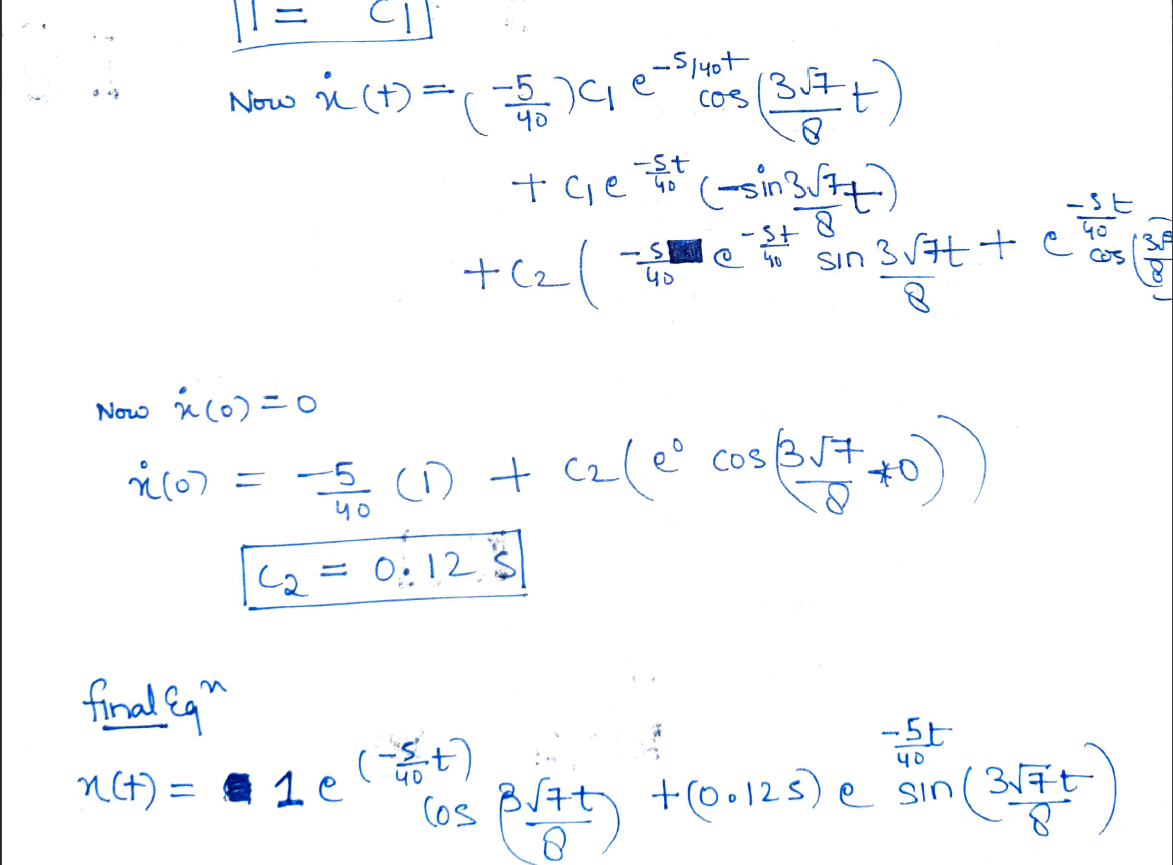 1 = C1
Now ẋ(t) = (-5/40) C1 e^-5/40t cos (3√7/8 t)
+ C1 e^-5t/40 (-sin 3√7/8 t)
+ C2 ( -5/40 e^-5t/40 sin 3√7t/8 + e^-5t/40 cos (3√
Now ẋ(0) = 0
ẋ(0) = -5/40 (1) + C2 (e^0 cos (3√7/8 *0))
C2 = 0.125
final Eqn
x(t) = 1 e^(-5/40 t) cos (3√7t/8) + (0.125) e^-5t/40 sin (3√7t/8)